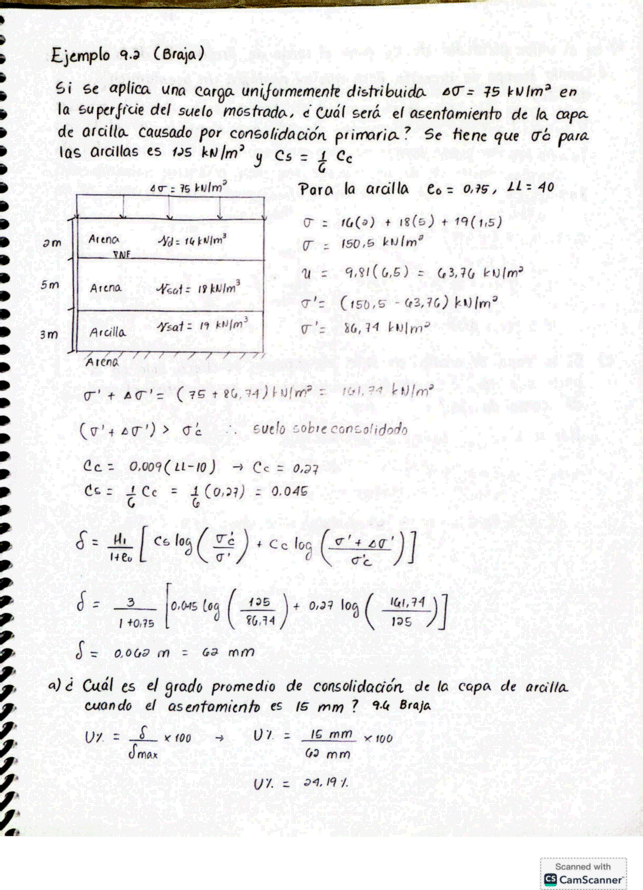 Ejemplo 9.2 (Braja)
Si se aplica una carga uniformemente distribuida Δσ = 75 kN/m² en
la superficie del suelo mostrada, ¿Cuál será el asentamiento de la capa
de arcilla causado por consolidación primaria? Se tiene que σ'c para
las arcillas es 125 kN/m² y Cs = 1/6 Cc
Δσ = 75 kN/m²
Para la arcilla e₀ = 0,75, LL = 40
2m Arena γd = 16 kN/m³
NF
5m Arena γsat = 18 kN/m³
3m Arcilla γsat = 19 kN/m³
Arena
σ = 16(2) + 18(5) + 19(1,5)
σ = 150,5 kN/m²
u = 9,81(6,5) = 63,76 kN/m²
σ' = (150,5 - 63,76) kN/m²
σ' = 86,74 kN/m²
σ' + Δσ' = (75 + 86,74) kN/m² = 161,74 kN/m²
(σ' + Δσ') > σ'c ∴ suelo sobreconsolidado
Cc = 0,009 (LL-10) → Cc = 0,27
Cs = 1/6 Cc = 1/6 (0,27) = 0.045
δ = H₁/1+e₀ [ Cs log (σ'c/σ') + Cc log (σ' + Δσ'/σ'c) ]
δ = 3/1+0,75 [ 0,045 log (125/86,74) + 0,27 log (161,74/125) ]
δ = 0,062 m = 62 mm
a) ¿ Cuál es el grado promedio de consolidación de la capa de arcilla
cuando el asentamiento es 15 mm ? 9.4 Braja
U% = δ/δmax × 100 → U% = 15 mm/62 mm × 100
U% = 24,19 %
Scanned with
CS CamScanner